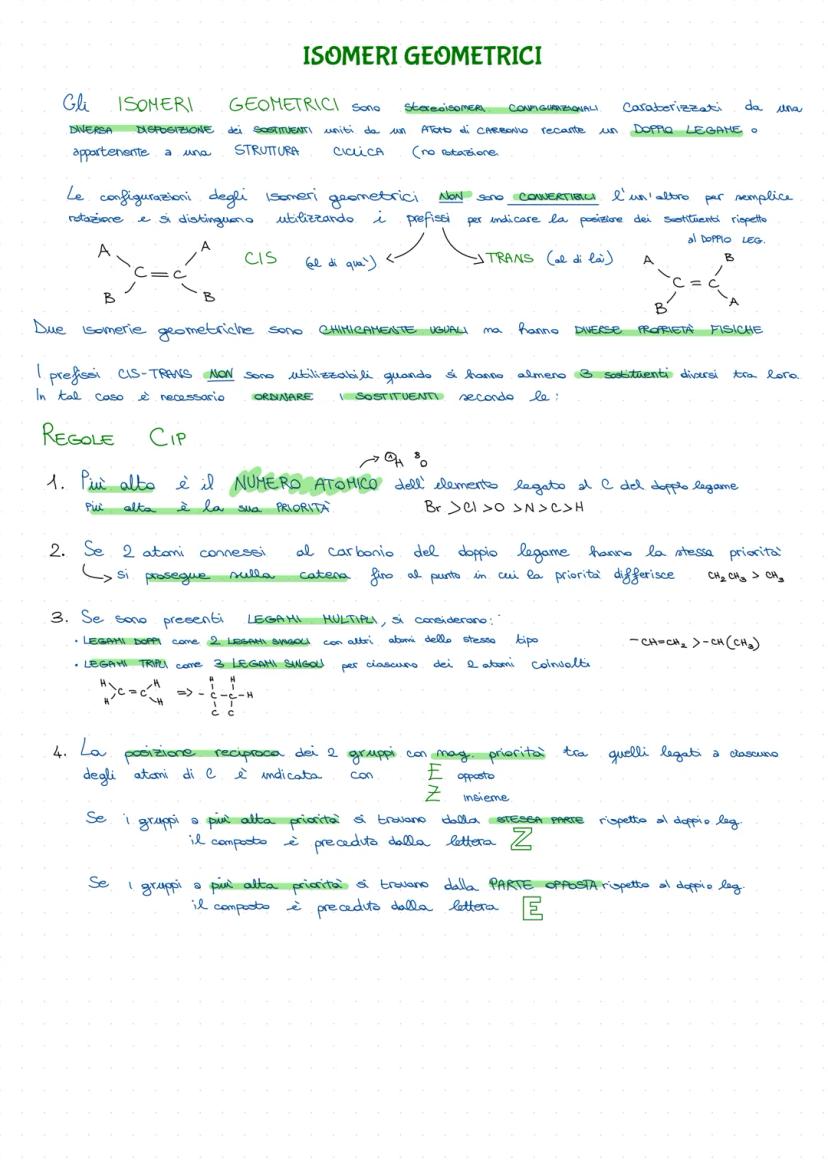 ISOMERI GEOMETRICI
Gli ISOMERI GEOMETRICI sono stereoisomeri CONFIGURAZIONALI caratterizzati da una
DIVERSA DISPOSIZIONE dei SOSTITUENTI uniti da un ATOMO di CARBONIO recante un DOPPIO LEGAME o
appartenente a una STRUTTURA CICLICA (no rotazione.
Le configurazioni degli isomeri geometrici NON sono CONVERTIBILI l'un'altro per semplice
rotazione e si distinguono utilizzando i prefissi per indicare la posizione dei sostituenti rispetto
al DOPPIO LEG.
A A
C=C
B B
CIS (al di qua')
TRANS (al di là)
A B
C=C
B A
Due isomerie geometriche sono CHIMICAMENTE UGUALI ma hanno DIVERSE PROPRIETÀ FISICHE
I prefissi CIS-TRANS NON sono utilizzabili quando si hanno almeno 3 sostituenti diversi tra loro.
In tal caso è necessario ORDINARE I SOSTITUENTI secondo le:
REGOLE CIP
→ ¹H ⁸O
1. Più alto è il NUMERO ATOMICO dell'elemento legato al C del doppio legame
Più alta è la sua PRIORITÀ Br >Cl >O >N>C>H
2. Se 2 atomi connessi al carbonio del doppio legame hanno la stessa priorità
↳ si prosegue sulla catena fino al punto in cui la priorità differisce CH₂CH₃ > CH₃
3. Se sono presenti LEGAMI MULTIPLI, si considerano:
• LEGAMI DOPPI come 2 LEGAMI SINGOLI con altri atomi dello stesso tipo -CH=CH₂ >-CH(CH₃)
• LEGAMI TRIPLI come 3 LEGAMI SINGOLI per ciascuno dei 2 atomi coinvolti
H H H H
C=C => -C-C-H
H H C C
4. La posizione reciproca dei 2 gruppi con mag. priorità tra quelli legati a ciascuno
degli atomi di C è indicata con E opposto
Z insieme
Se i gruppi a più alta priorità si trovano dalla STESSA PARTE rispetto al doppio leg.
il composto è preceduto dalla lettera Z
Se i gruppi a più alta priorità si trovano dalla PARTE OPPOSTA rispetto al doppio leg.
il composto è preceduto dalla lettera E